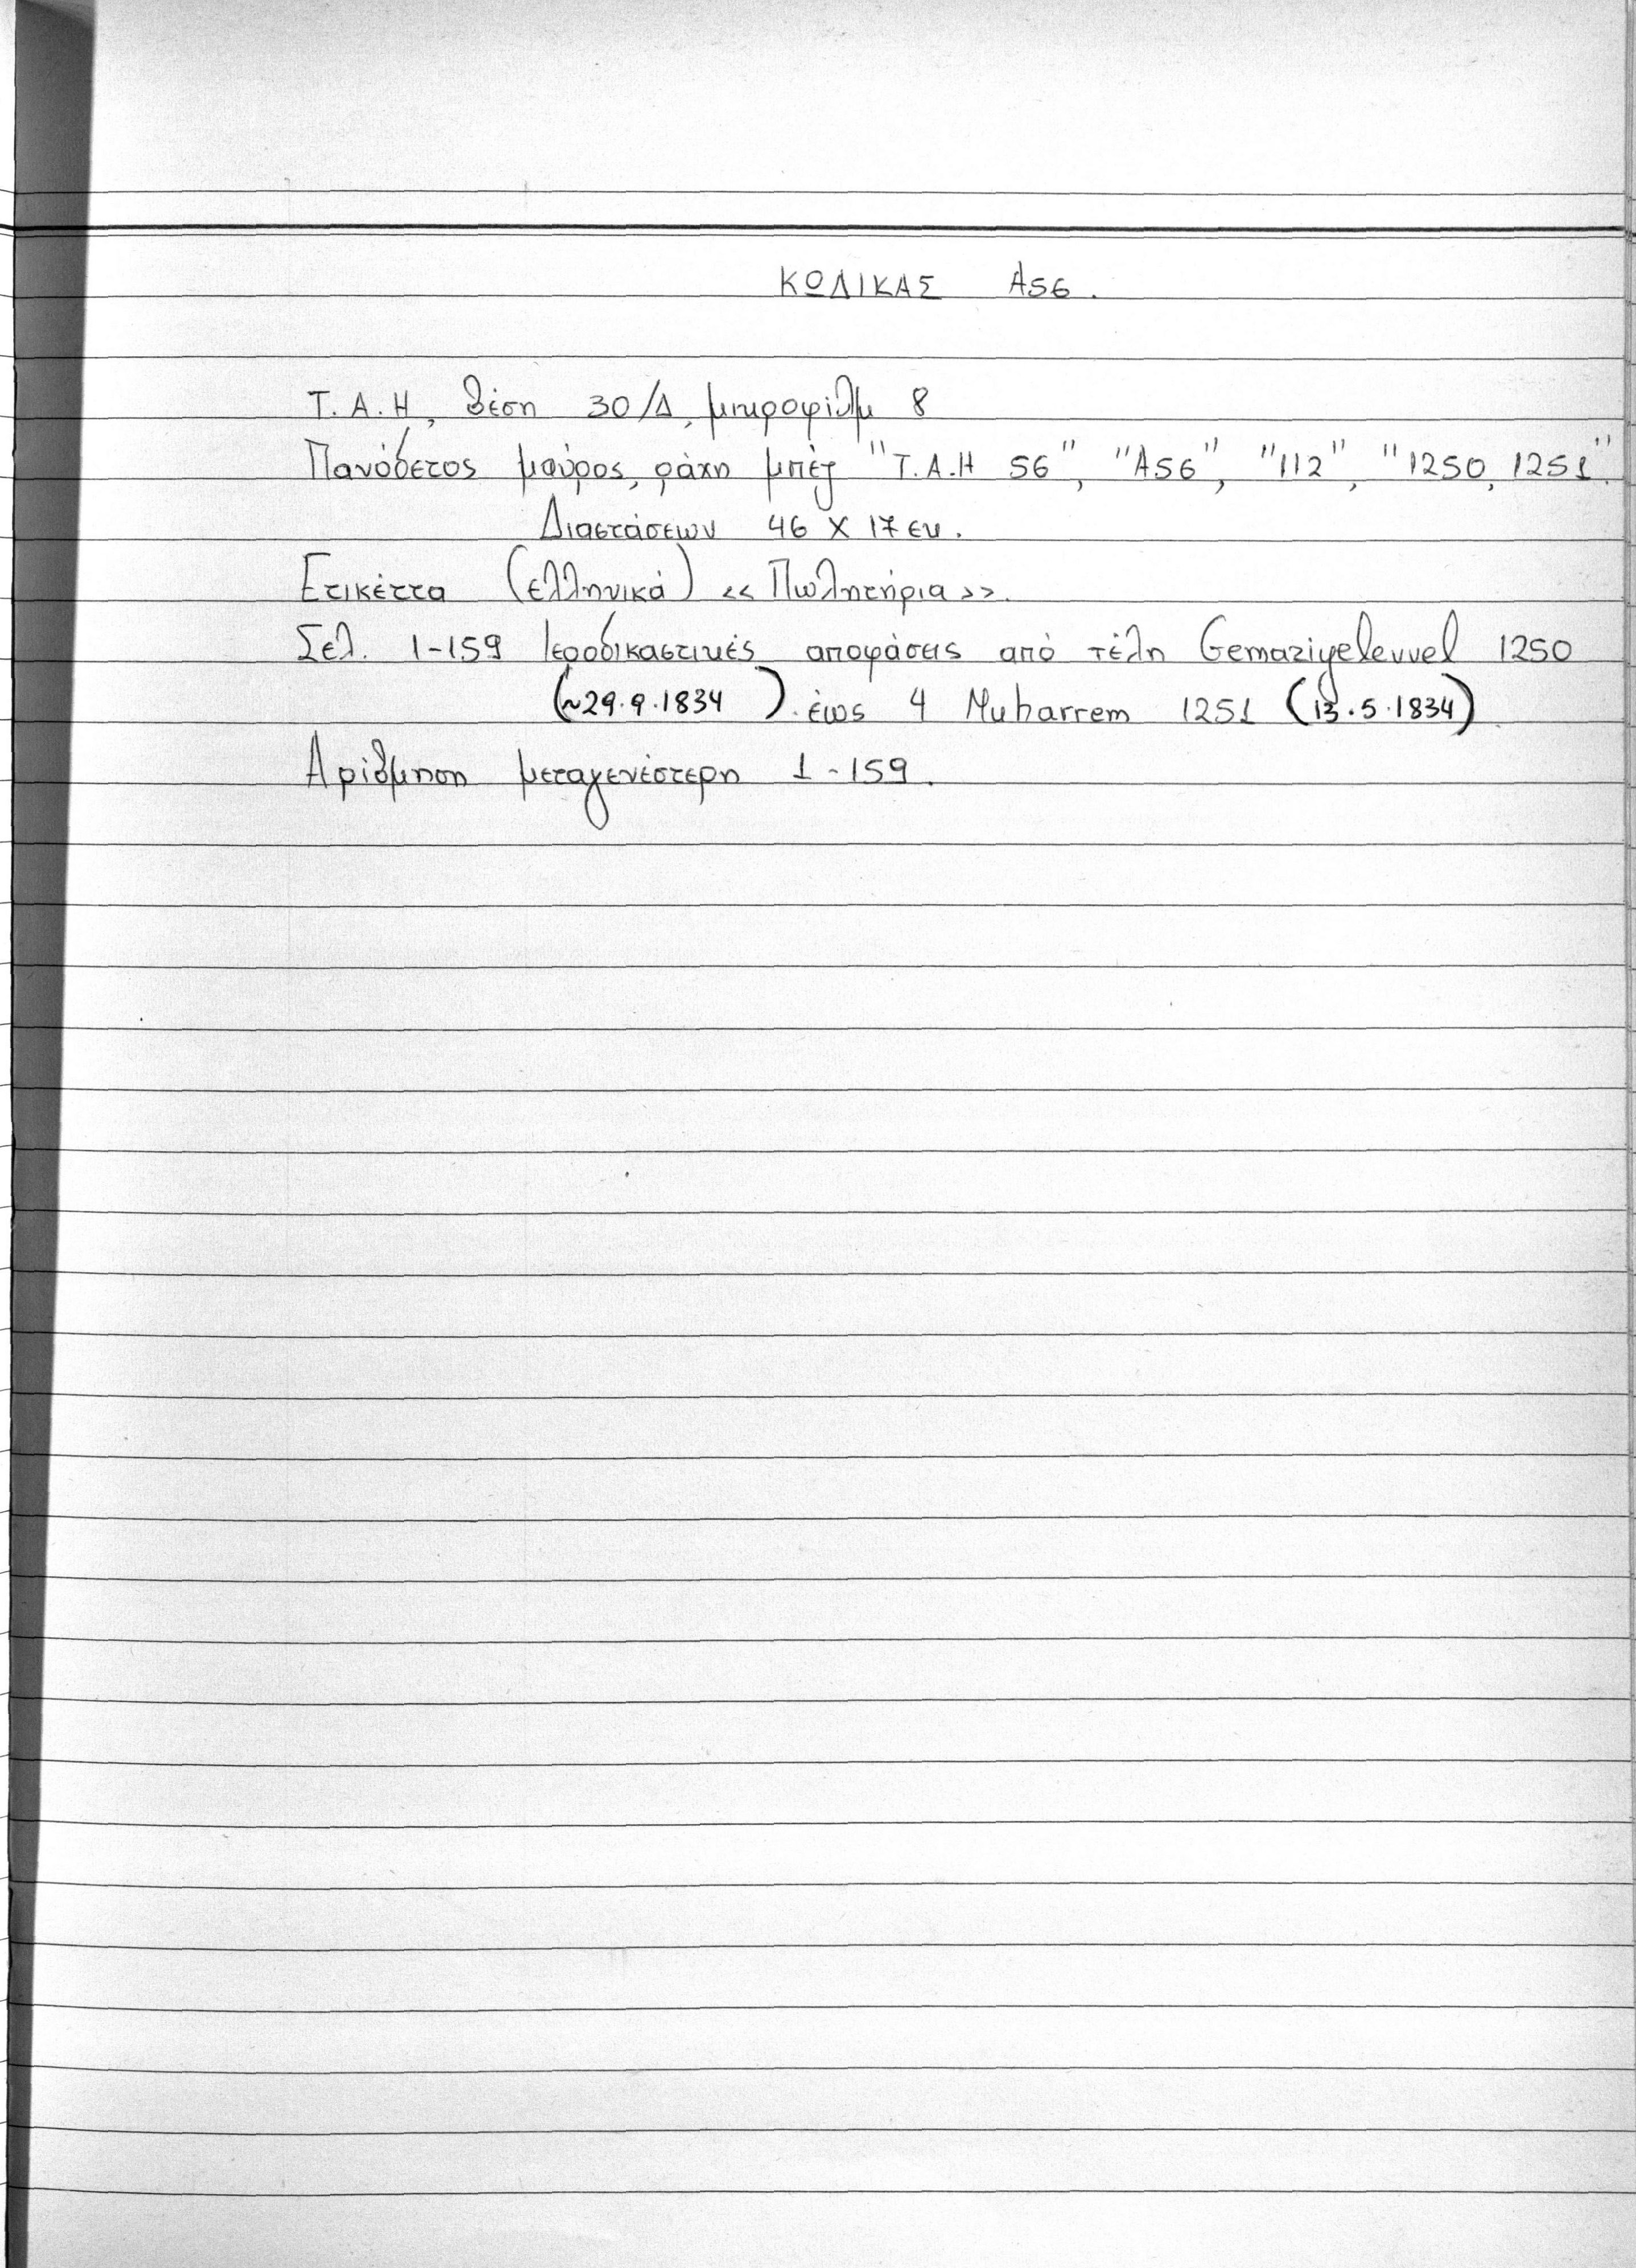 ΚΩΔΙΚΑΣ Α56.
Τ.Α.Η, θέση 30/Δ, μικροφίλμ 8
Πανόδετος μαύρος, ράχη μπέζ "Τ.Α.Η 56", "Α56", "112", "1250, 1251".
Διαστάσεων 46 Χ 17 εκ.
Ετικέττα (ελληνικά) «Πωλητήρια».
Σελ. 1-159 Ιεροδικαστικές αποφάσεις από τέλη Gemaziyelevvel 1250
(~29.9.1834 ). έως 4 Muharrem 1251 (13.5.1834).
Αρίθμηση μεταγενέστερη 1-159.